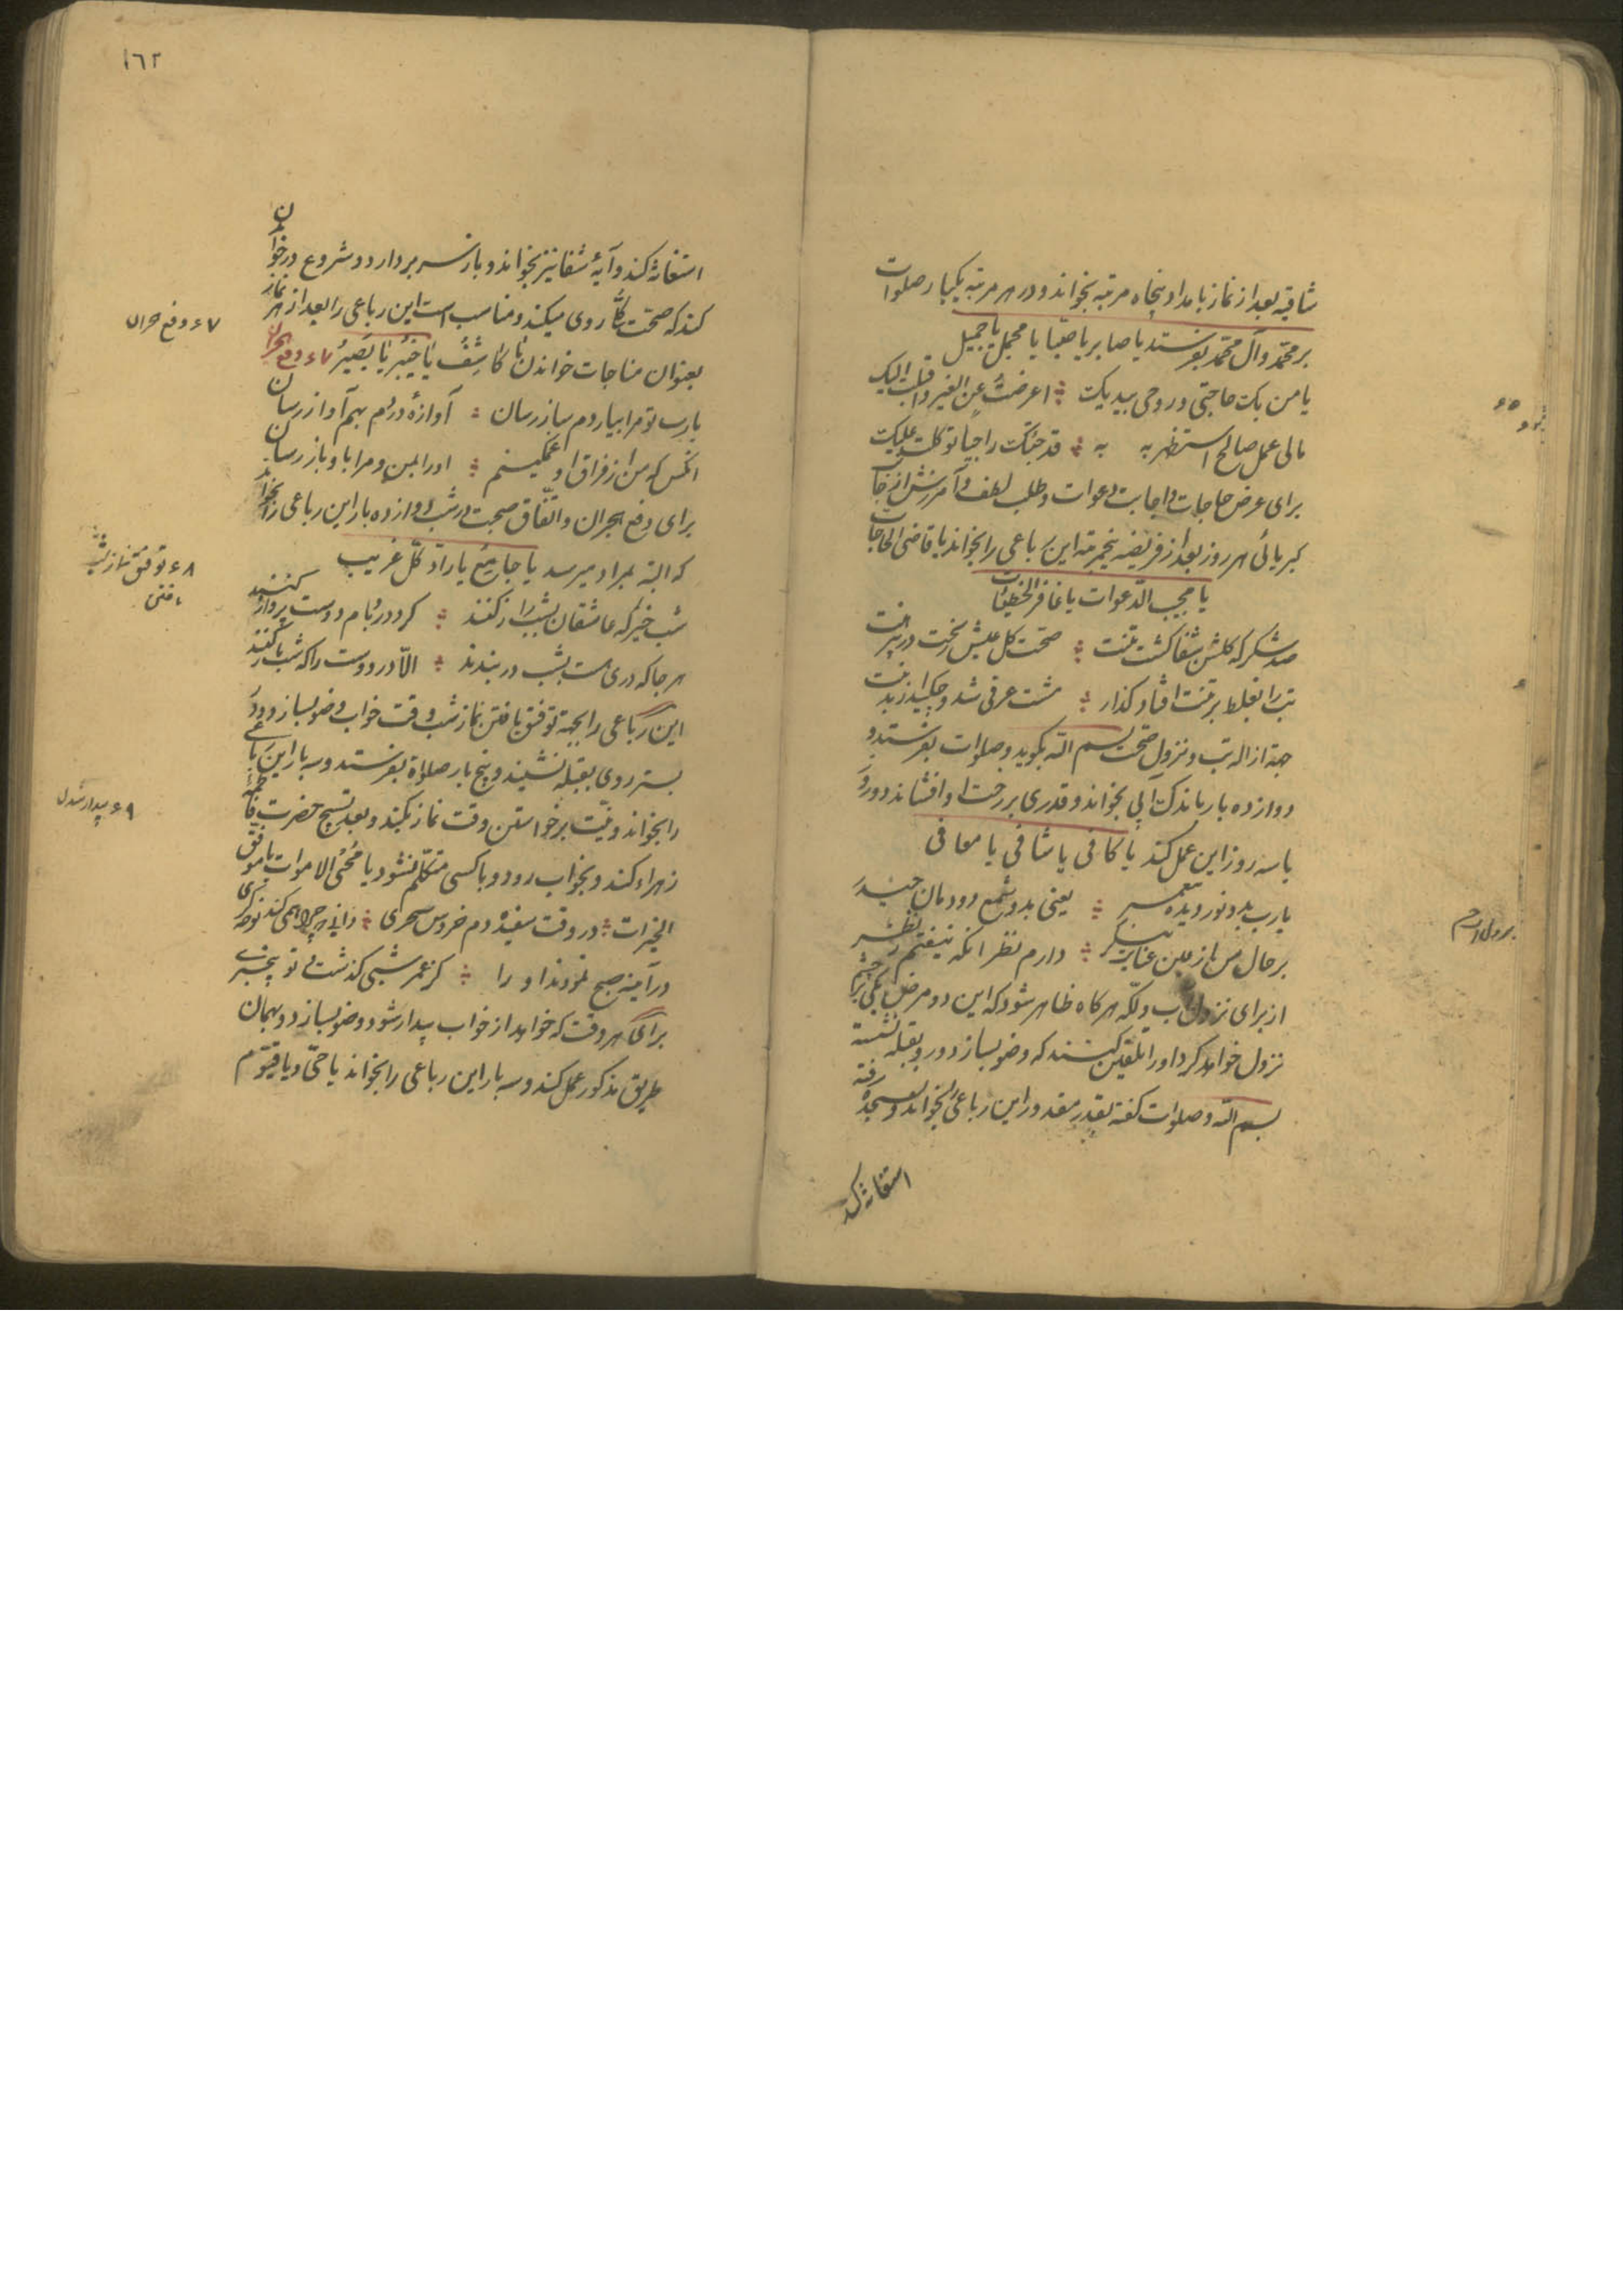 شاقیه بعد از نماز بامداد پنجاه مرتبه بخواند و در هر مرتبه یکبار صلوات
بر محمّد و آل محمّد بفرستد یا صابر یا یا مجمل یا جمیل
یا من بک حاجتی و روحی بیدیک اعرضتُ عن الغیر و اقبلت الیک
مالی عمل صالح استظهر به به قد جئتک راجیا توکلت علیک
برای عرض حاجات و اجابت دعوات و طلب لطف و آمرزش از جناب
کبریائی هر روز بعد از فریضه پنجمرتبه این رباعی را بخواند یا قاضی الحاجات
یا مجیب الدّعوات یا غافر الخطیئات
صد شکر که گلشن شفا گشت تنت صحّت گل عیش ریخت در پیرهنت
تب را بغلط بر تنت افتاد گذار شد و چکید از بدنت
جهة ازاله تب و نزول صحّت بسم الله بگوید و صلوات بفرستد و
دوازده بار باندک آبی بخواند و قدری بر رخت او افشاند و دو روز
یا سه روز این عمل کند یا کافی یا شافی یا معافی
یارب بدو نور دیده پیغمبر یعنی بدو شمع دودمان حیدر
بر حال من از عین عنایت بنگر دارم نظر آنکه نیفتم ز نظر
از برای نزول آب و لکّه هر گاه ظاهر شود که این دو مرض بیکی از چشم
نزول خواهد کرد او را تلقین کنند که وضو بسازد و رو بقبله نشسته
بسم الله و صلوات گفته بقدر مقدور این رباعی بخواند و بسجده رفته
استغاثه کند
۶۵
نزول آب
۱٦۲
استغاثه کند و آیهٔ شفا نیز بخواند و باز سر بردارد و شروع در خواندن
کند که صحّت کلّ روی میکند و مناسب است این رباعی را بعد از هر نماز
بعنوان مناجات خواندن یا کاشِفُ یا خبیرُ یا بَصیرُ ۶۷ دفع هجران
یارب تو مرا بیار دمساز رسان آوازهٔ دردم بهم آواز رسان
آنکس که من از فراق او غمگینم او را بمن و مرا باو باز رسان
برای دفع هجران و اتّفاق صحبت در شب دوازده بار این رباعی را بخواند
که البته بمراد میرسد یا جامِعُ یا رادّ کلّ غریب
شب خیز که عاشقان بشب راز کنند گرد در و بام دوست پرواز کنند
هر جا که دری است بشب در بندند الّا در دوست را که شب باز کنند
این رباعی را بجهة توفیق یافتن نماز شب وقت خواب وضو بسازد و در
بستر روی بقبله نشیند و پنج بار صلواة بفرستد و سه بار این رباعی
را بخواند و نیّت برخواستن وقت نماز بکند و بعد تسبیح حضرت فاطمه
زهراء کند و بخواب رود و با کسی متکلّم نشود یا مُحْیِ الاموات یا موفّق
الخیرات در وقت سفیده دم خروس سحری دانی که چرا همی کند نوحه گری
در آینه صبح نمودند او را کز عمر شبی گذشت و تو بیخبری
برای هر وقت که خواهد از خواب بیدار شود وضو بسازد و بهمان
طریق مذکور عمل کند و سه بار این رباعی را بخواند یا حیّ و یا قیّوم
۶۷ دفع هجران
۶۸ توفیق نماز شب
یافتن
۶۹ بیدار شدن